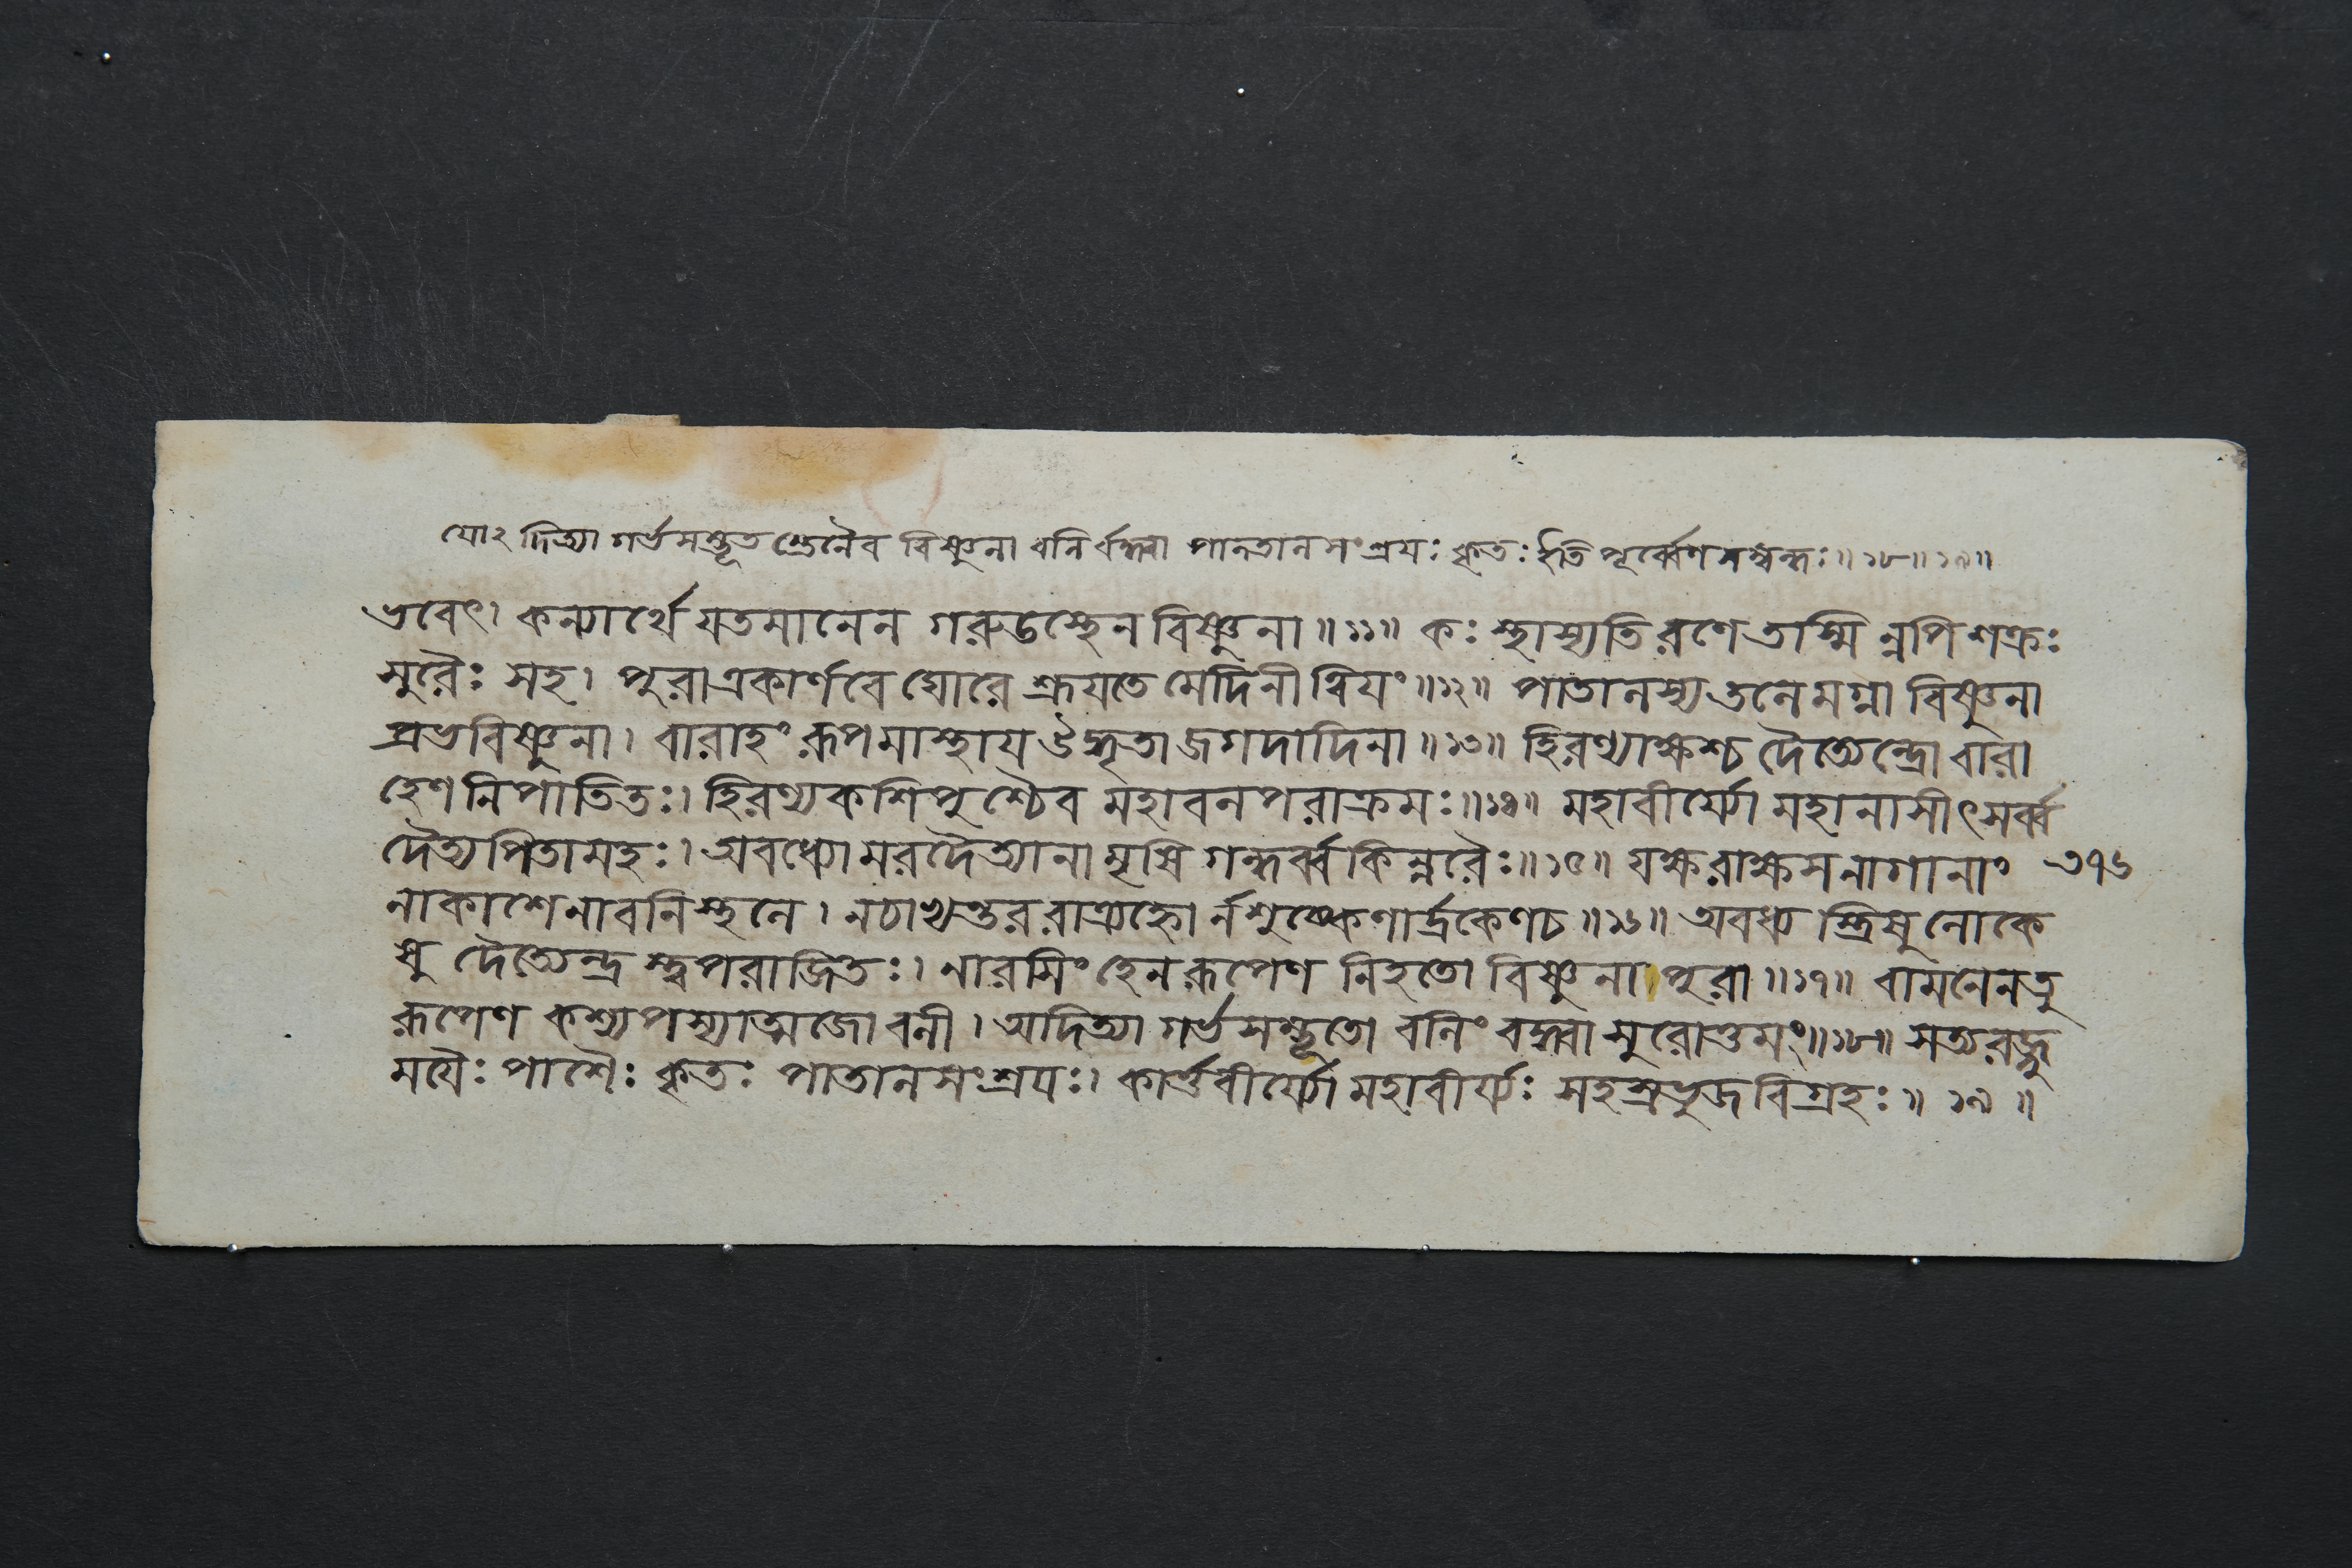 যোঽ দিত্যা গর্ভসম্ভূত স্তেনৈব বিষ্ণুনা বলি র্বদ্ধ্বা পাতালসংশ্রয়ঃ কৃতঃ ইতি পূর্ব্বেণসম্বন্ধঃ॥১৮॥১৯॥
ভবেৎ। কন্যার্থে যতমানেন গরুডস্থেন বিষ্ণুনা॥১১॥ কঃ স্থাস্যতি রণে তস্মি ন্নপি শক্রঃ
সুরৈঃ সহ। পুরা একার্ণবে ঘোরে শ্রূয়তে মেদিনী ত্বিয়ং॥১২॥ পাতালস্য তলে মগ্না বিষ্ণুনা
প্রভবিষ্ণুনা। বারাহং রূপমাস্থায় উদ্ধৃতা জগদাদিনা॥১৩॥ হিরণ্যাক্ষশ্চ দৈত্যেন্দ্রো বারা
হেণ নিপাতিতঃ। হিরণ্যকশিপুশ্চৈব মহাবলপরাক্রমঃ॥১৪॥ মহাবীর্য্যো মহানাসীৎ সর্ব্ব
দৈত্যপিতামহঃ। অবধ্যো মরদৈত্যানা মৃষি গন্ধর্ব্বকিন্নরৈঃ॥১৫॥ যক্ষরাক্ষসনাগানাং ৩৭৬
নাকাশেনাবনিস্থলে। নচাভ্যন্তররাত্র্যহ্নো র্নশুষ্কেণার্দ্রকেণচ॥১৬॥ অবধ্য স্ত্রিষুলোকে
ষু দৈত্যেন্দ্র স্ত্বপরাজিতঃ। নারসিংহেনরূপেণ নিহতো বিষ্ণুনা পুরা॥১৭॥ বামনেনতু
রূপেণ কশ্যপস্যাত্মজো বলী। অদিত্যা গর্ভসম্ভূতো বলিং বদ্ধ্বা সুরোত্তমঃ॥১৮॥ সত্যরজ্জু
ময়ৈঃ পাশৈঃ কৃতঃ পাতালসংশ্রয়ঃ। কার্ত্তবীর্য্যো মহাবীর্য্যঃ সহস্রভুজবিগ্রহঃ॥ ১৯ ॥